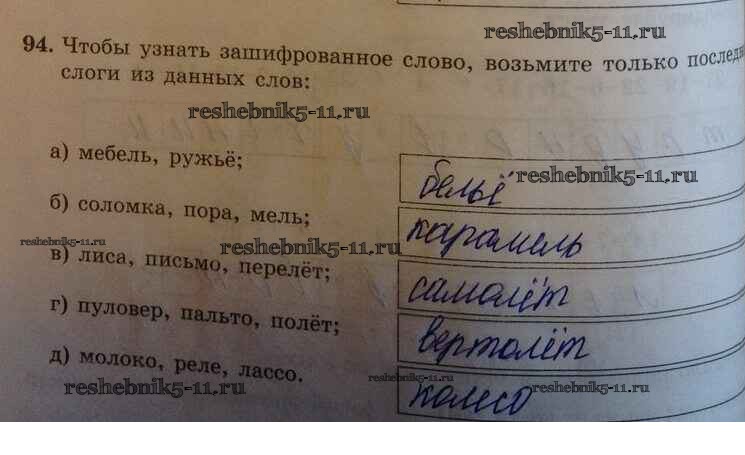 reshebnik5-11.ru
94. Чтобы узнать зашифрованное слово, возьмите только последн
слоги из данных слов:
reshebnik5-11.ru
а) мебель, ружьё;
бельё
reshebnik5-11.ru
б) соломка, пора, мель;
карамель
reshebnik5-11.ru
reshebnik5-11.ru
в) лиса, письмо, перелёт;
самолёт
г) пуловер, пальто, полёт;
вертолёт
д) молоко, реле, лассо.
колесо
reshebnik5-11.ru
reshebnik5-11.ru
reshebnik5-11.ru